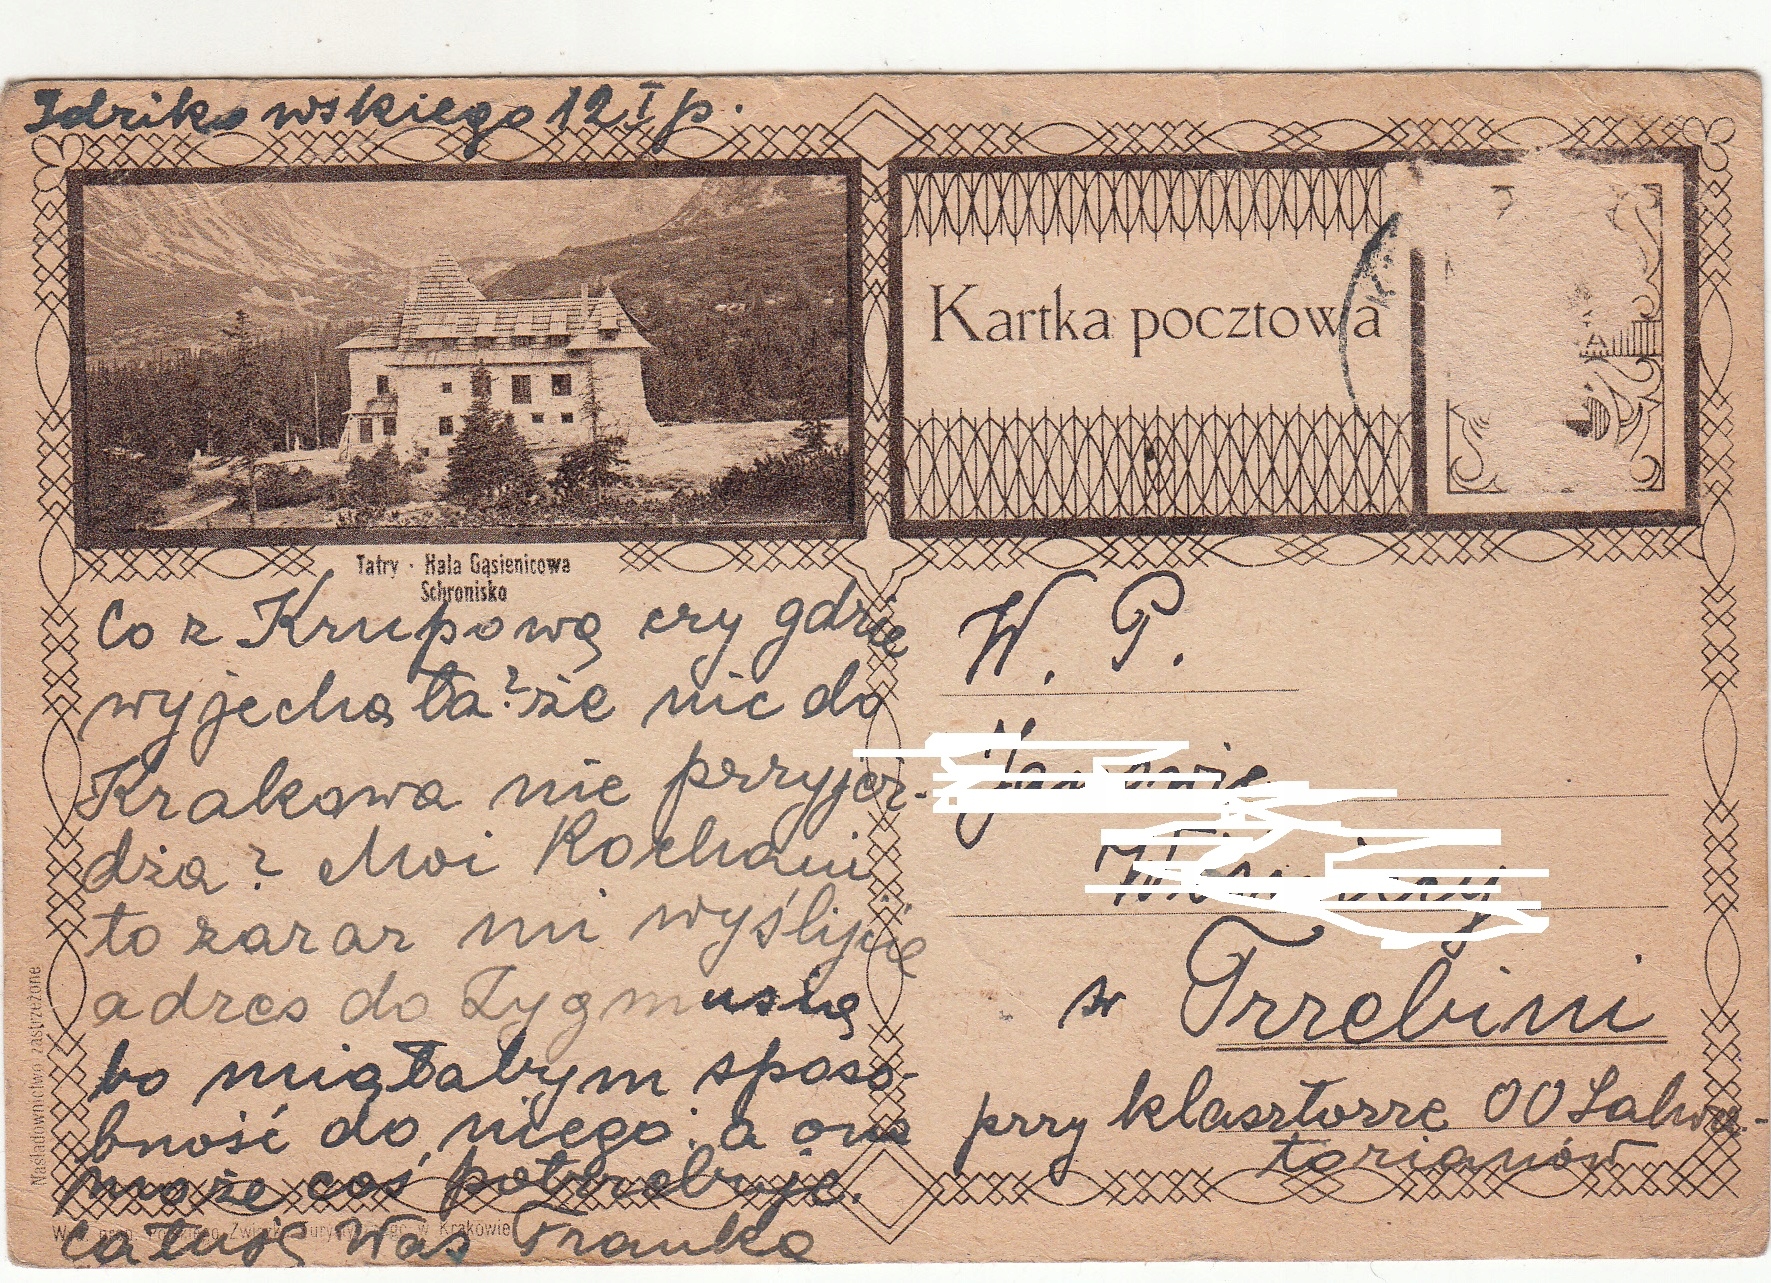 Idzikowskiego 12 I p.
Kartka pocztowa
Tatry · Hala Gąsienicowa
Schronisko
Co z Krupową czy gdzie
wyjechała? że nic do
Krakowa nie przyjeż-
dża? Moi Kochani
to zaraz mi wyślijcie
adres do Zygmusia
bo miałabym sposo-
bność do niego, a on
może coś potrzebuje.
Całuję Was Franka
W. P.
w Trzebini
przy klasztorze OO Salwa-
torianów
Naśladownictwo zastrzeżone
w Krakowie